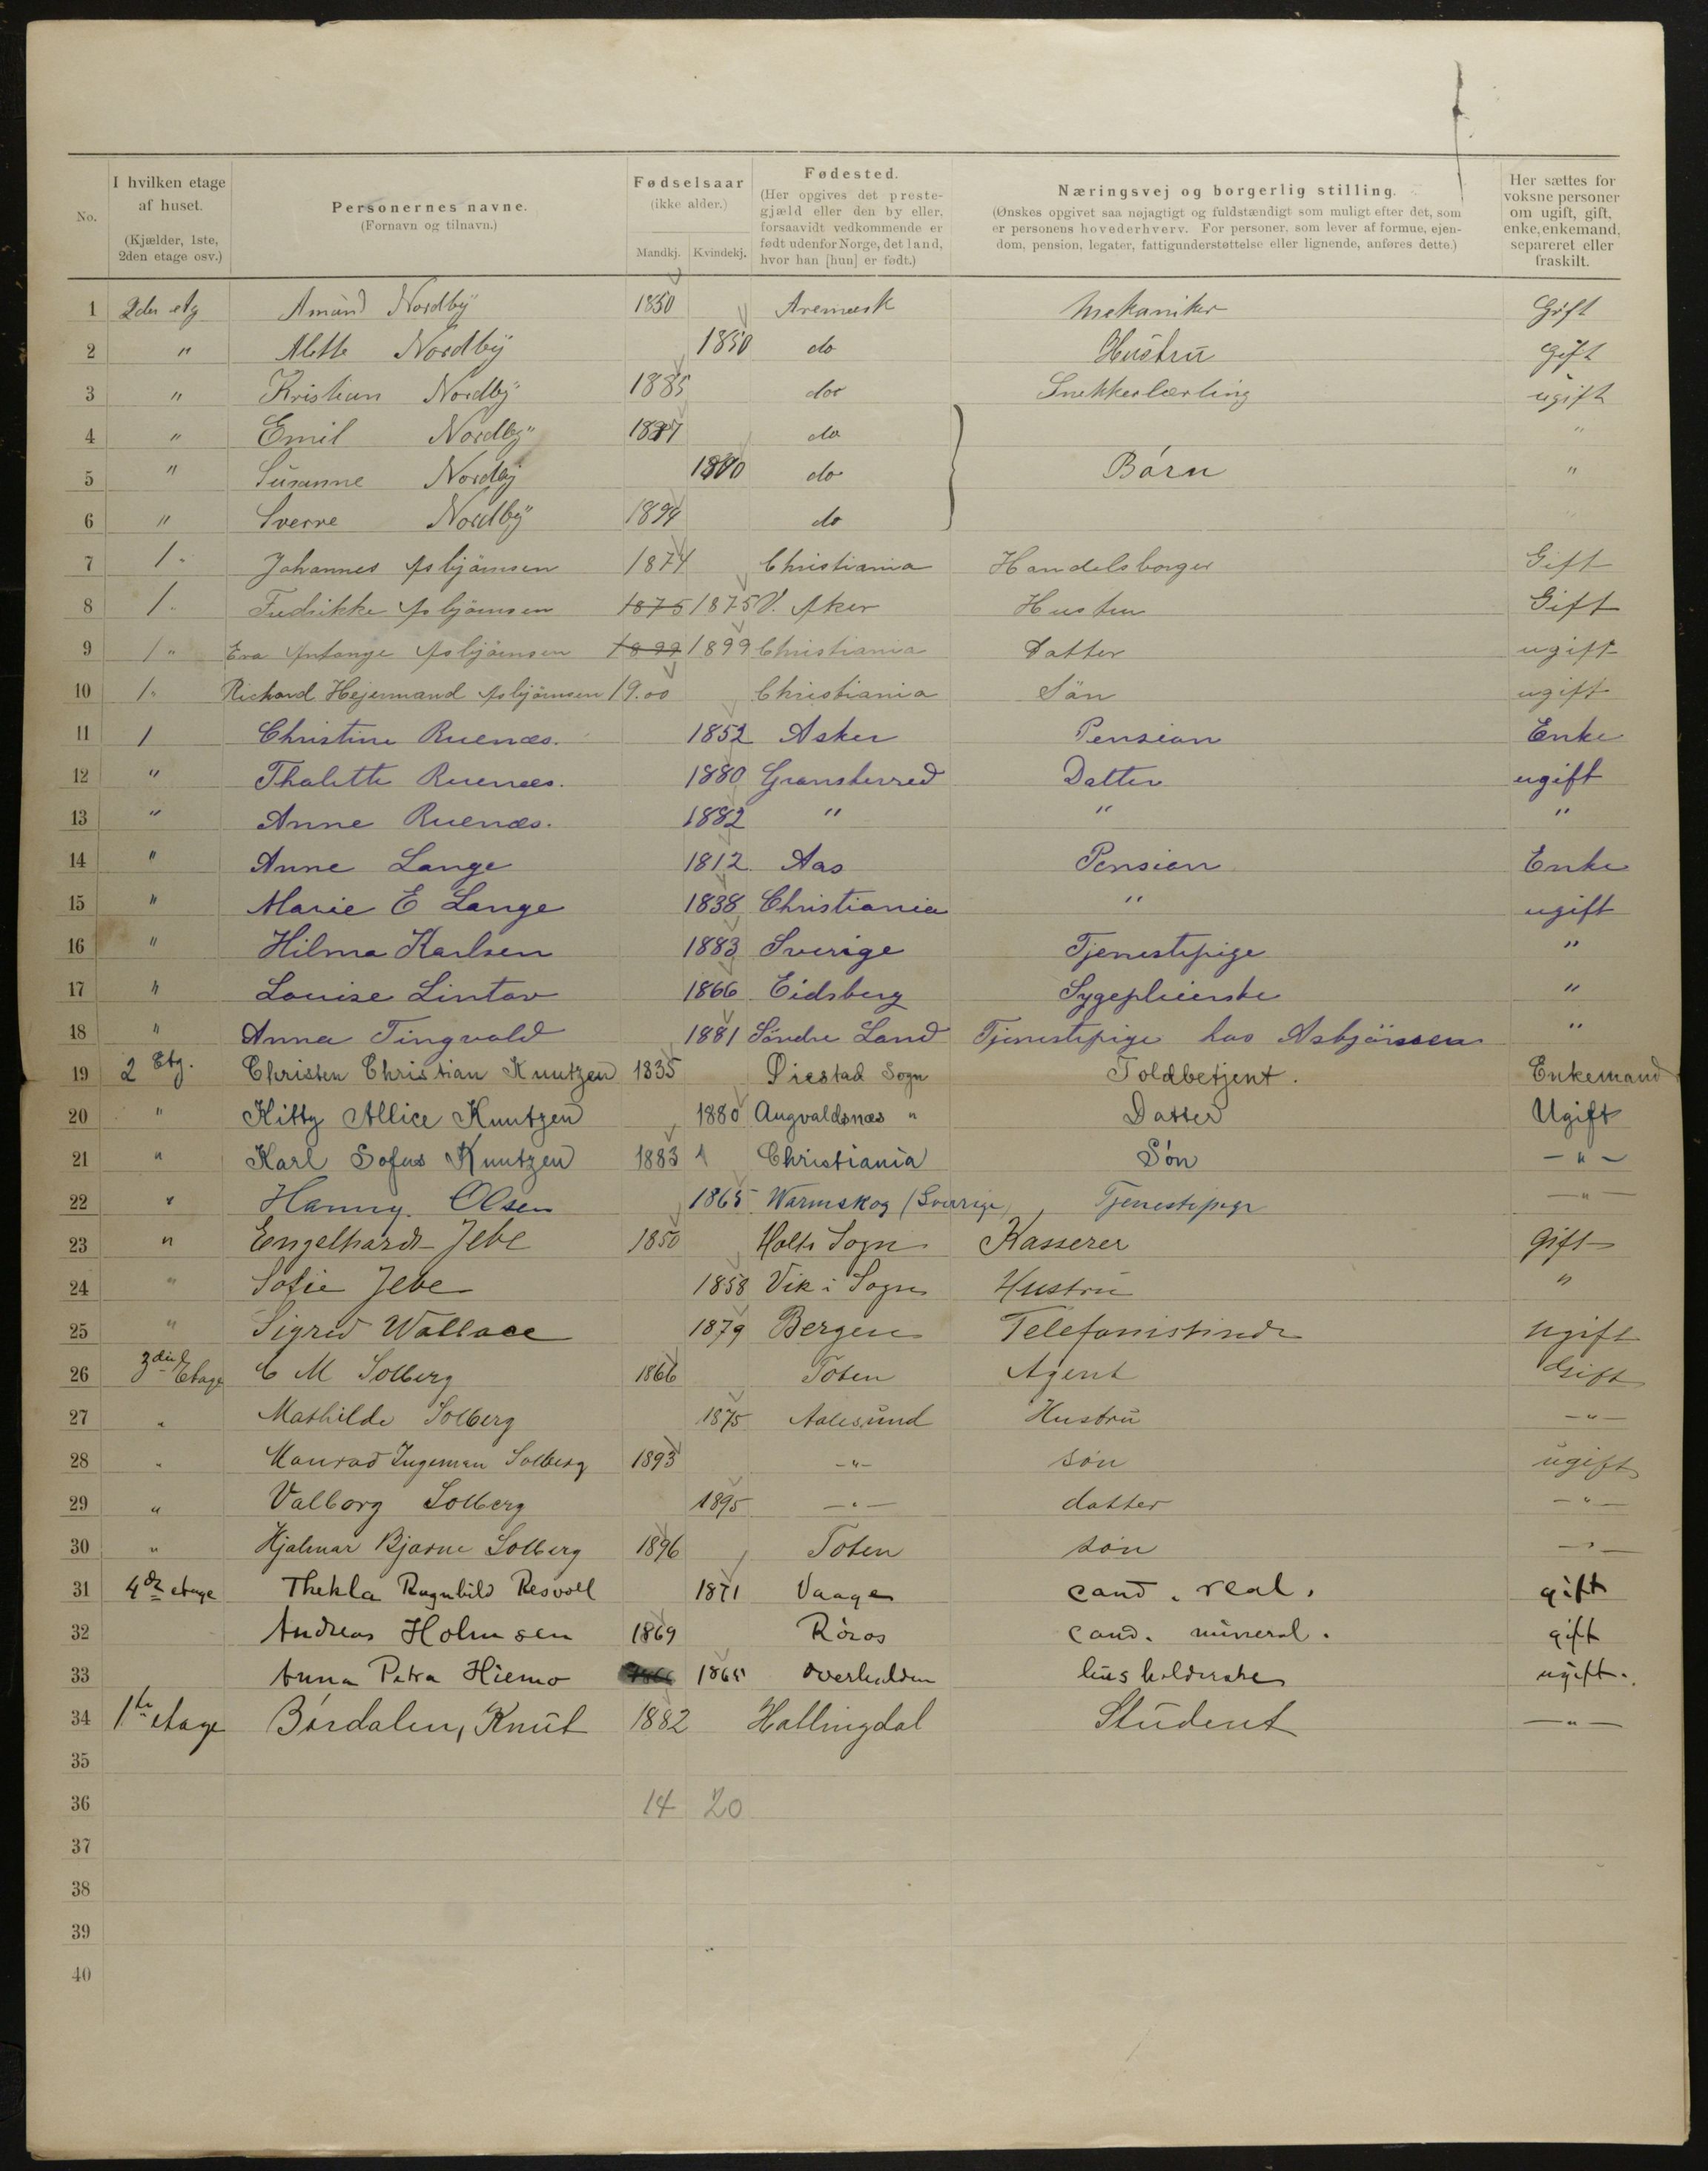 No. I hvilken etage af huset. (Kjælder, 1ste, 2den etage osv.) Personernes navne. (Fornavn og tilnavn.) Fødselsaar (ikke alder.) Mandkj. Kvindekj. Fødested. (Her opgives det prestegjæld eller den by eller, forsaavidt vedkommende er født udenfor Norge, det land, hvor han [hun] er født.) Næringsvej og borgerlig stilling. (Ønskes opgivet saa nøjagtigt og fuldstændigt som muligt efter det, som er personens hovederhverv. For personer, som lever af formue, ejendom, pension, legater, fattigunderstøttelse eller lignende, anføres dette.) Her sættes for voksne personer om ugift, gift, enke, enkemand, separeret eller fraskilt.
1 2den etg Amünd Nordbÿ 1850 Aremark Mekaniker Gift
2 " Alette Nordbÿ 1850 do Hüstrü Gift
3 " Kristian Nordbÿ 1885 do Snekkerlærling ügift
4 " Emil Nordbÿ do "
5 " Süsanne Nordbÿ do Børn "
6 " Sverre Nordbÿ 1894 do
7 1 " Johannes Asbjörnsen 1874 Christiania Handelsborger Gift
8 1 " Fredrikke Asbjörnsen 1875 1875 V. Aker Hustru Gift
9 1 " Eva Asbjörnsen 1899 1899 Christiania Datter ugift
10 1 " Richard Hejermand Asbjörnsen 19.00 Christiania Sön ugift
11 1 Christine Ruenæs. 1852 Asker Pension Enke
12 " Thalette Ruenæs. 1880 Gransherred Datter ugift
13 " Anne Ruenæs. 1882 " " "
14 " Anne Lange 1812 Aas Pension Enke
15 " Marie E Lange 1838 Christiania " ugift
16 " Hilma Karlsen 1883 Sverige Tjenestepige "
17 " Louise Lintov 1866 Eidsberg Sygepleierske "
18 " Anna Tingvold 1881 Söndre Land Tjenestepige hos Asbjörnsen "
19 2 Etg. Christen Christian Knutzen 1835 Øiestad Sogn Toldbetjent. Enkemand
20 " Kitty Allice Knutzen 1880 Augvaldsnæs " Datter Ugift
21 " Karl Sofus Knutzen 1883 Christiania Søn — " —
22 " Hanny. Olsen 1865 Warmskog (Sverige) Tjenestepige — " —
23 " Engelhardt Jebe 1850 Holts Sogn Kasserer Gift
24 " Sofie Jebe 1858 Vik i Sogn Hustru "
25 " Sigred Wallace 1879 Bergen Telefonistinde Ugift
26 3die Etage C M Solberg 1866 Toten Agent Gift
27 " Mathilde Solberg 1875 Aalesund Hustrü — " —
28 " Konrad Ingeman Solberg 1893 — " — søn ugift
29 " Valborg Solberg 1895 — " — datter — " —
30 " Hjalmar Bjarne Solberg 1896 Toten søn — " —
31 4de etage Thekla Ragnhild Resvoll 1871 Vaage cand. real. gift
32 Andreas Holmsen 1869 Røros cand. mineral. gift
33 Anna Petra Hiemo 1865 Overhalden husholderske ugift.
34 1ste etage Børdalen, Knüt 1882 Hallingdal Stüdent — " —
35
36 14 20
37
38
39
40